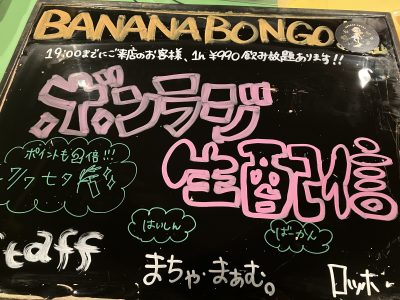 BANANA BONGO
19:00までにご来店のお客様、1h ¥990 飲み放題あります!!
ボンラジ
生配信
ポイントも2倍!!!
7/7 七夕
はいしん
ばーかん
staff
まちゃ・まぁむ。
ロッホ